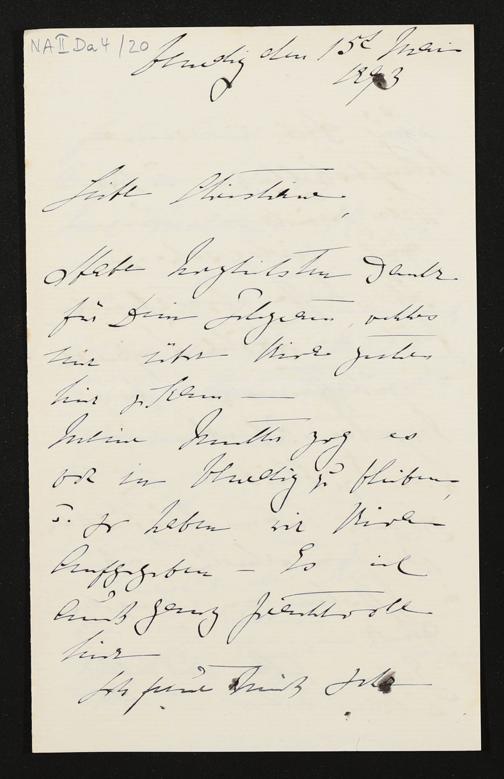 NA II Da 4 / 20
Venedig den 15t Mai
1893
Liebe Christiane,
Habe herzlichsten Dank
für Dein Telegram, welches
mir über Riva gestern
hier zu kam —
Meine Mutter zog es
vor in Venedig zu bleiben,
u. so haben wir Riva
aufgegeben — Es ist
auch ganz prachtvoll
hier
Ich freue mich sehr